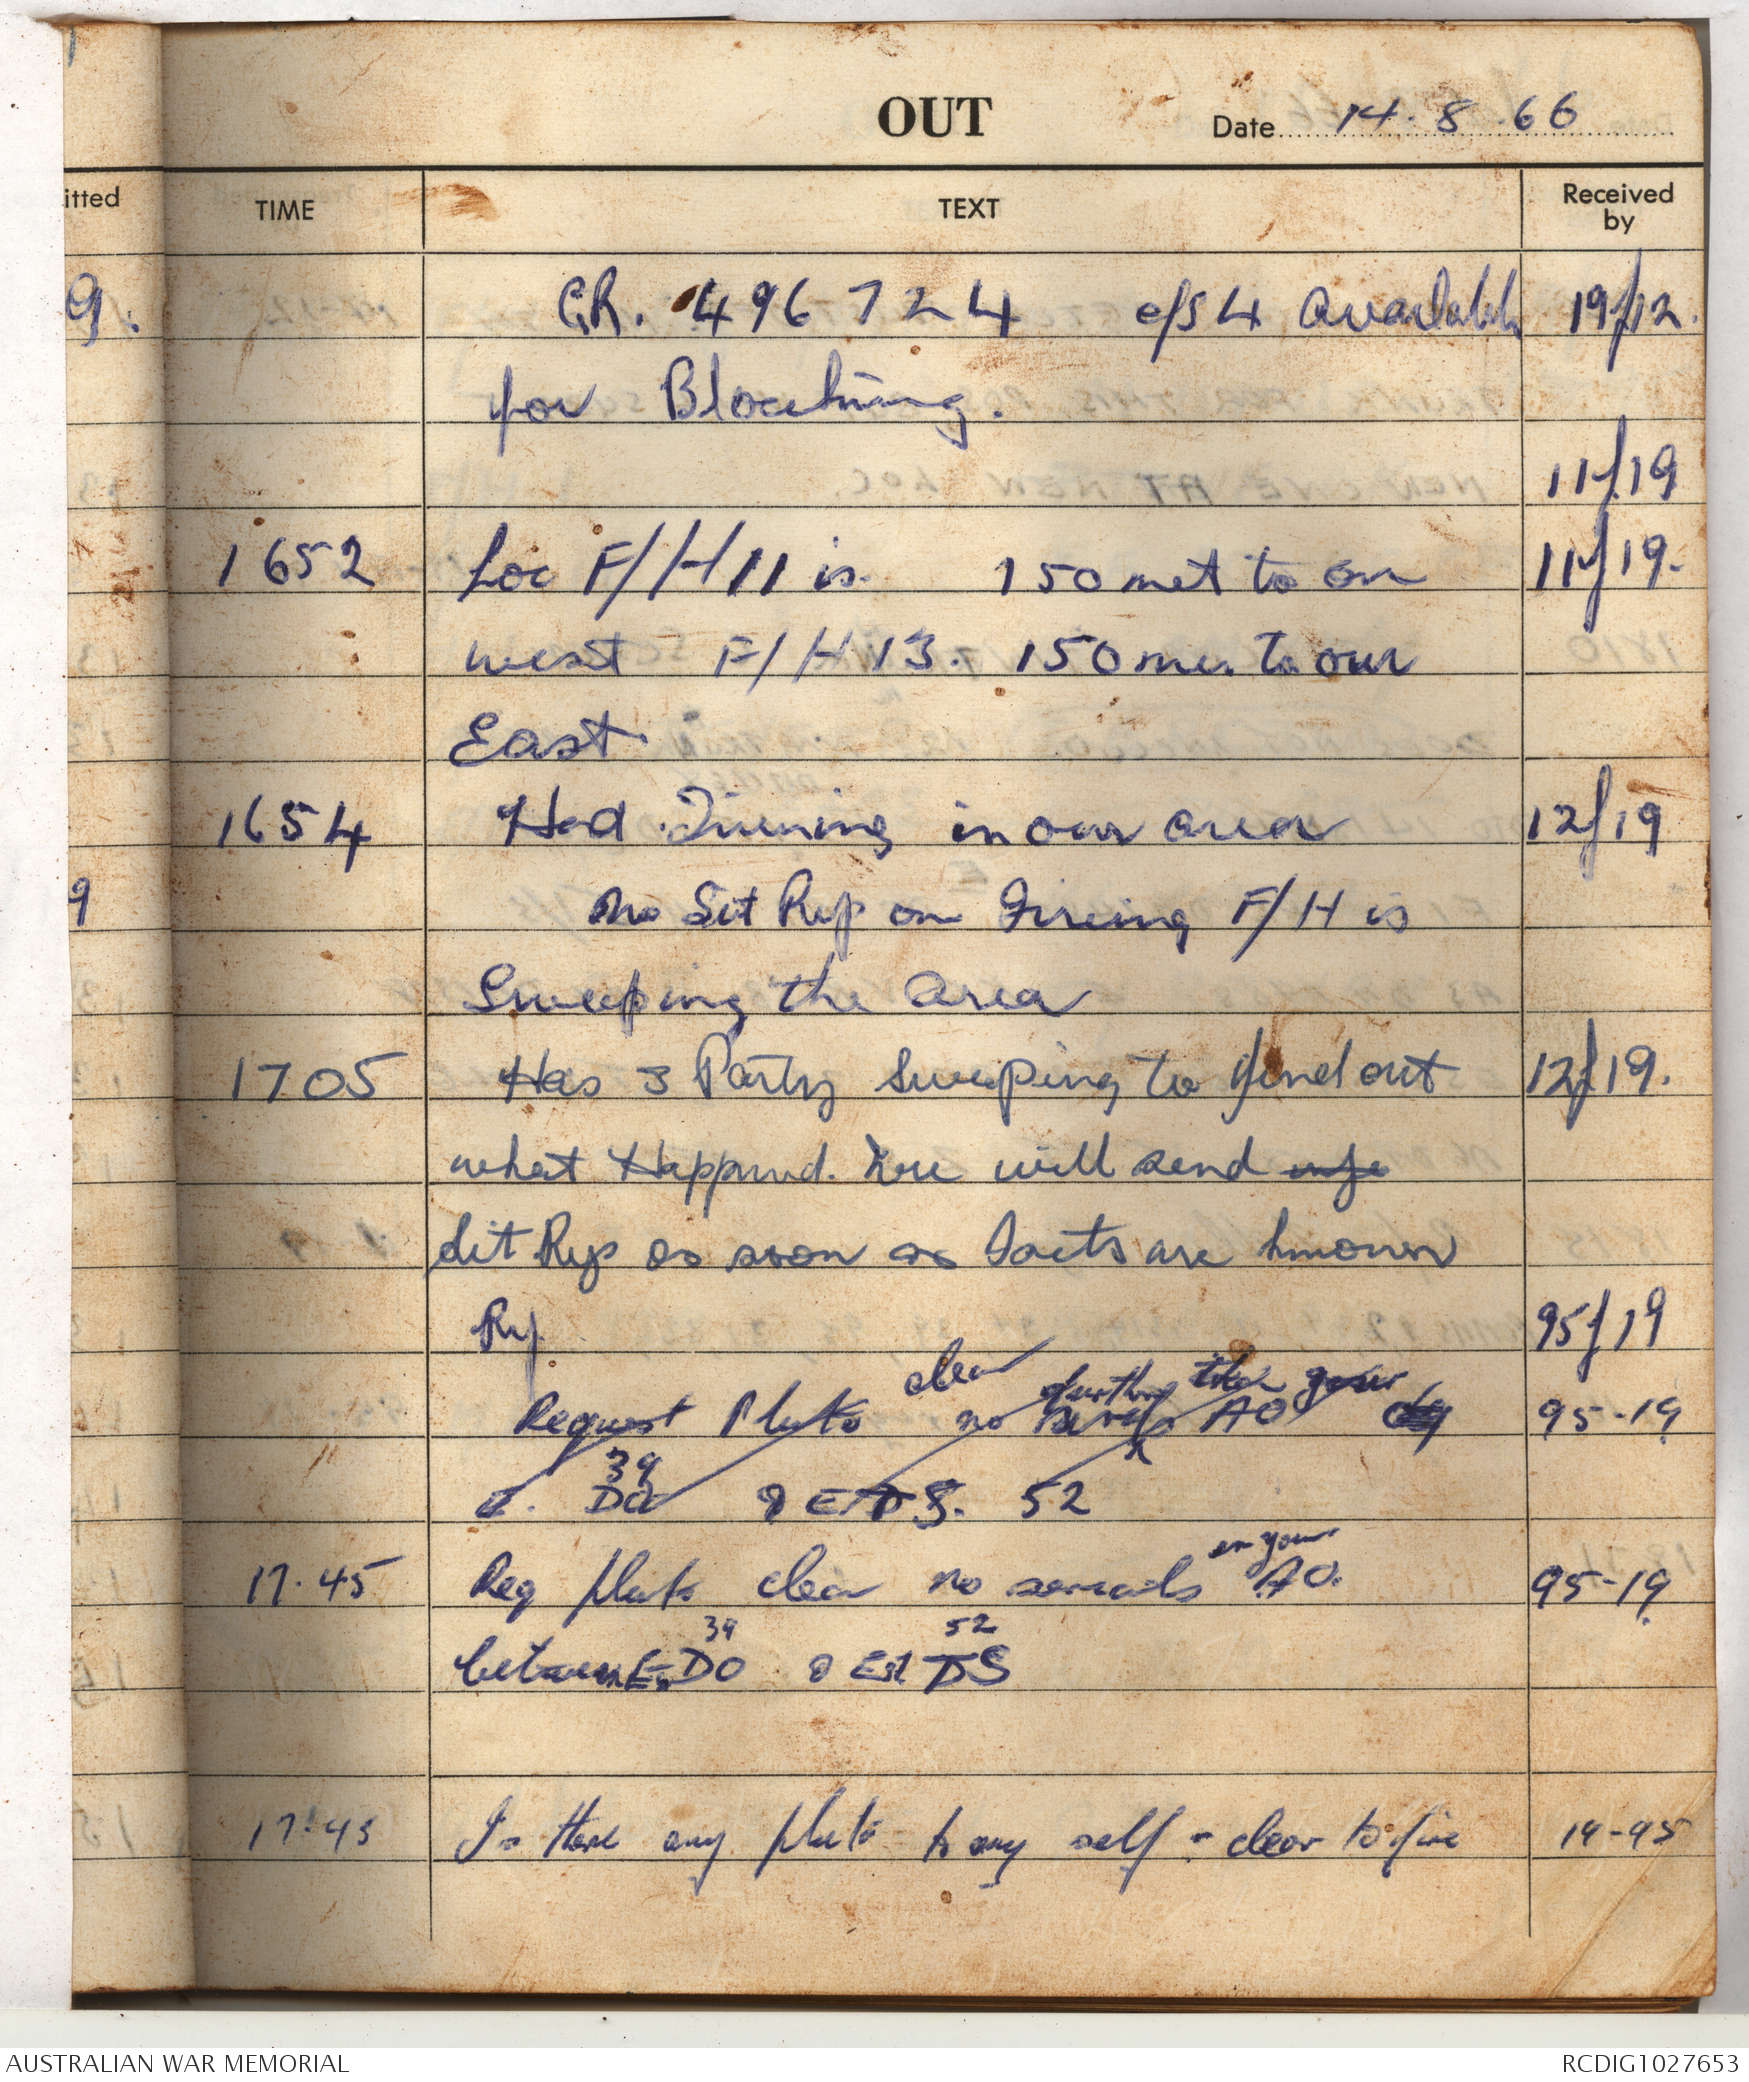 OUT
Date 14.8.66
itted TIME TEXT Received by
9. GR. 496724 c/s 4 available 19/12.
for Blocking.
11/19
1652 Loc F/H 11 is. 150 met to our 11/19.
west F/H 13. 150 me. to our
East.
1654 Had Firering in our area 12/19
9 no Sit Rep on Firering F/H is
Sweeping the area
1705 Has 3 Party Sweeping to find out 12/19.
what Happend. We will send info
Sit Rep as soon as Facts are known
Rep 95/19
clear further than your
Request Pluto no AO 95-19
39
E. DO & E. DS. 52
17.45 Req Pluto clear no serials in your AO. 95-19
39 52
between E. DO & East DS
17.45 Is there any Pluto to my self - clear to fire 19-95
AUSTRALIAN WAR MEMORIAL RCDIG1027653